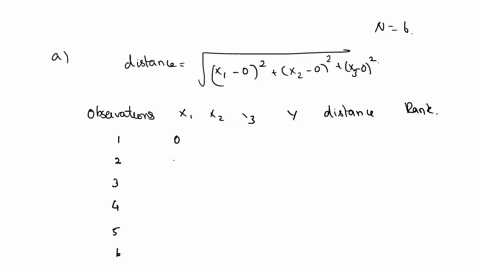 N = 6.
a) distance = √(x₁ - 0)² + (x₂ - 0)² + (x₃-0)².
Observations x₁ x₂ x₃ Y distance Rank.
1 0
2
3
4
5
6